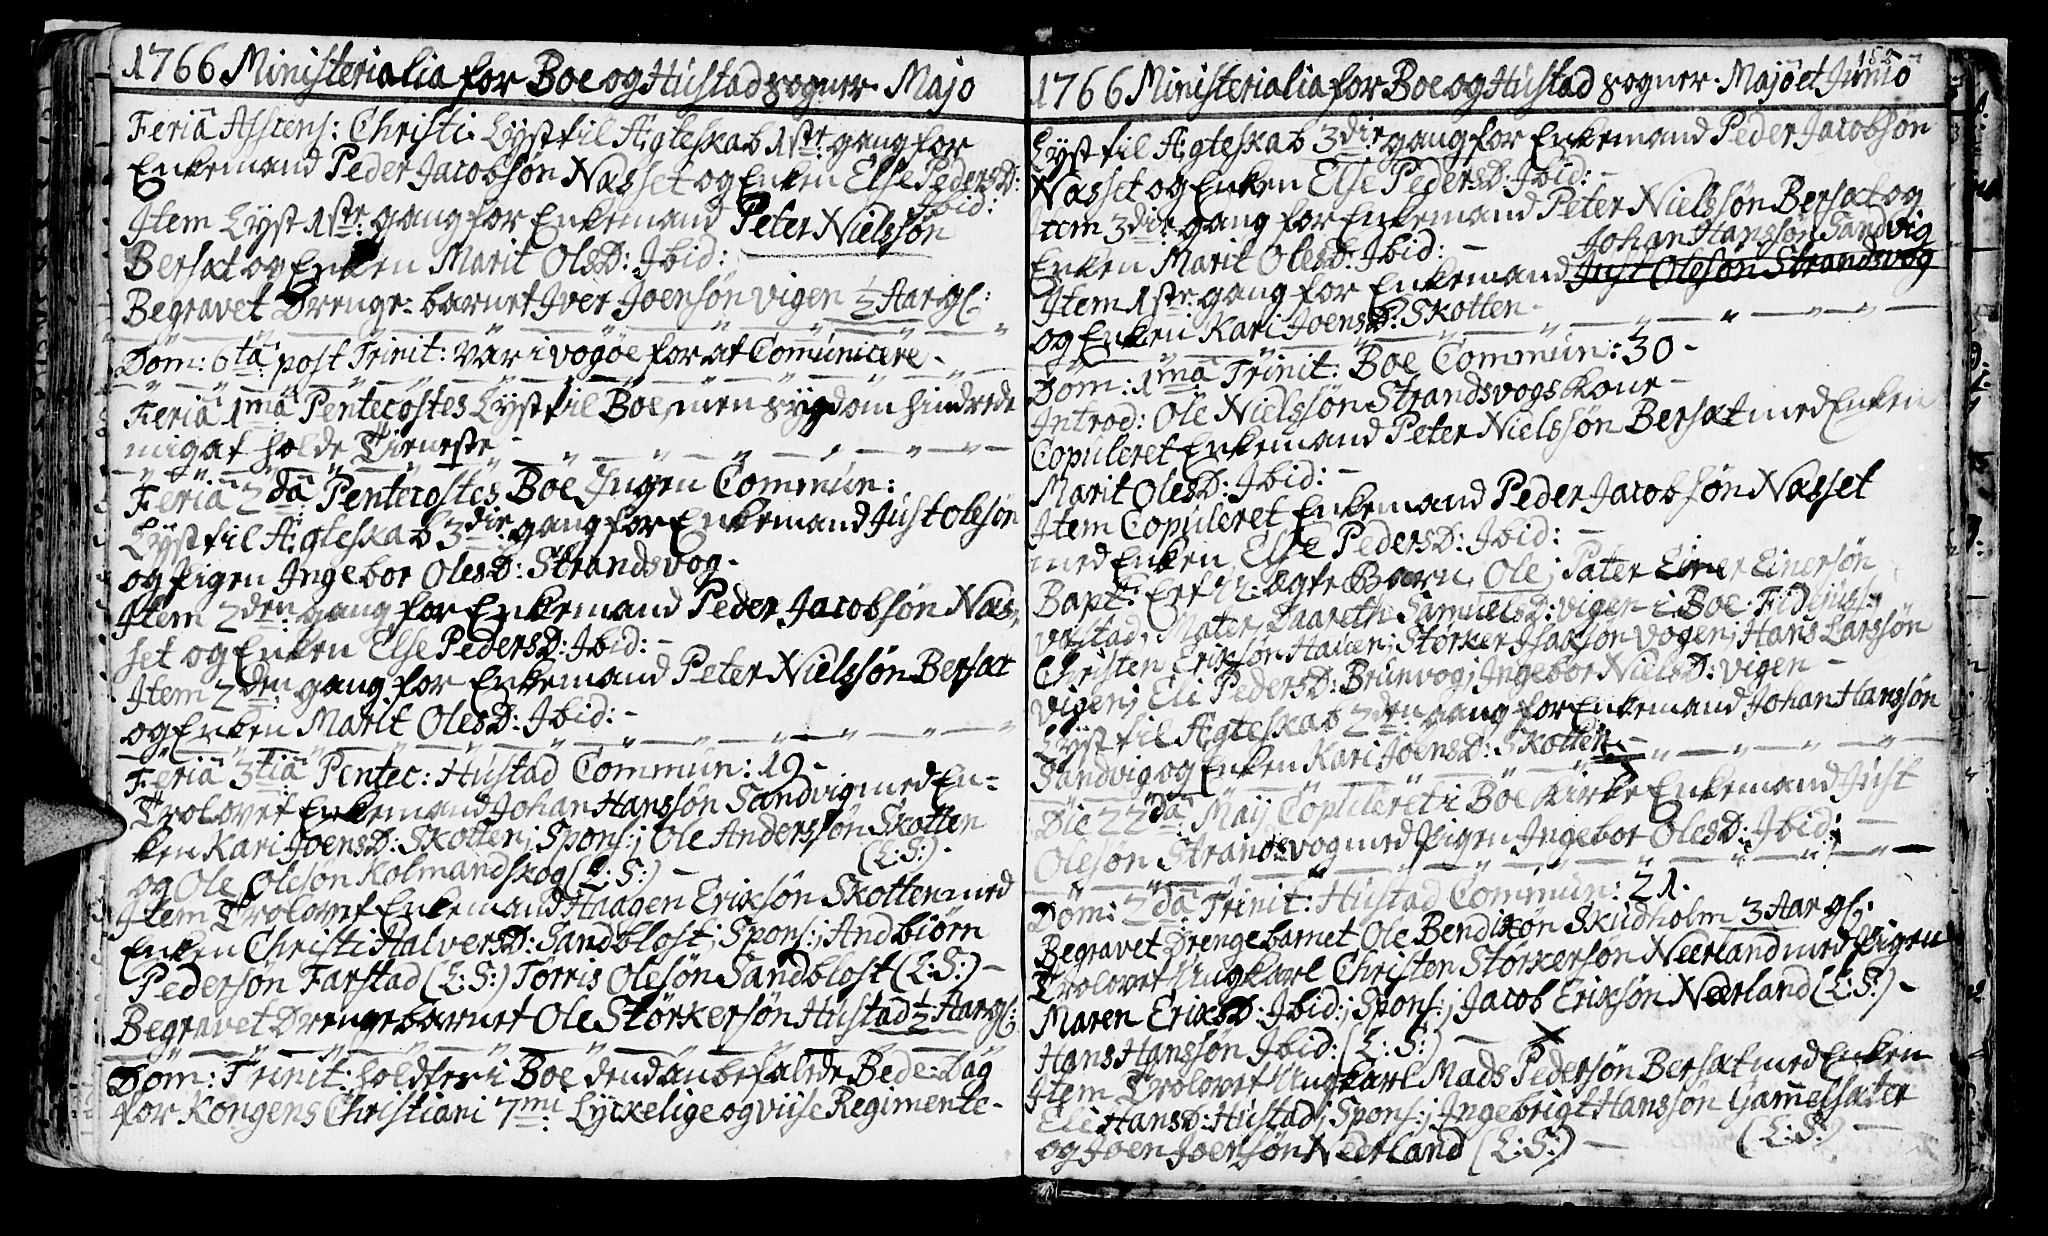 1766 Ministerialia for Boe og Hustad sogner. Majo
Feria Ascens: Christi. Lyst til Ægteskab 1ste gang for
Enkemand Peder Jacobsøn Næsset og Enken Else PedersD:
Ibid:
Item Lyst 1ste gang for Enkemand Peter Nielssøn
Bersæt og Enken Marit OlsD: Ibid:
Begravet Drenge-barnet Iver Joensøn vigen ½ Aar gl:
Dom: 6ta post Trinit: var i vogøe for at Comunicere -
Feria 1ma Pentecostes Lyst til Boe, men sygdom hindrede
mig at holde Tieneste -
Feria 2da Pentecostes Boe Ingen Commun:
Lyst til Ægteskab 3die gang for Enkemand Just Olesøn
og Pigen Ingebor OlesD: Strandsvog.
Item 2den gang for Enkemand Peder Jacobsøn Næs-
set og Enken Else PedersD: Ibid: -
Item 2den gang for Enkemand Peter Nielssøn Bersæt
og Enken Marit OlesD: Ibid: -
Feria 3tia Pentec: Hustad Commun: 19 -
Trolovet Enkemand Johan Hanssøn Sandvig med En-
ken Kari JoensD: Skotten; Spons:; Ole Anderssøn Skotten
(L:S:) -
og Ole Oleson Kolmandskog (L:S:) -
Item Trolovet Enkemand Haagen Eriksøn Skotten med
Enken Christi HalversD: Sandblost; Spons:; Andbiørn
Pedersøn Farstad (L:S:) Torris Olesøn Sandblost (L:S:) -
Begravet Drengebarnet Ole Størkersøn Hustad ½ Aar gl:
Dom: Trinit: holdtes i Boe dend anbefalede Bede-Dag
for Kongens Christiani 7mi Lyckelige og viise Regimente -
152
1766 Ministerialia for Boe og Hustad sogner. Majo et Junio
Lyst til Ægteskab 3die gang for Enkemand Peder Jacobsøn
Næsset og Enken Else PedersD: Ibid: -
Item 3die gang for Enkemand Peter Nielssøn Bersæt og
Enken Marit OlesD: Ibid: -
Johan Hanssøn Sandvig
Item 1ste gang for Enkemand Just Olesøn Strandsvog
og Enken Kari JoensD: Skotten -
Dom: 1ma Trinit: Boe Commun: 30 -
Introd: Ole Nielssøn Strandsvogs kone -
Copuleret Enkemand Peter Nielssøn Bersæt med Enken
Marit OlesD: Ibid: -
Item Copuleret Enkemand Peder Jacobsøn Næsset
med Enken Else PedersD: Ibid: -
Bapt: Et ægte Barn, Ole; Pater Einer Einersøn
vastad, Mater Baareth SamuelsD: vigen i Boe. Fidejuss:
Christen Eriksøn Hauen; Størker Isaksøn vogen; Hans Larssøn
vigen; Eli PedersD: Brunvog; Ingebor NielsD: vigen -
Lyst til Ægteskab 2den gang for Enkemand Johan Hanssøn
Sandvig og Enken Kari JoensD: Skotten -
Die 22da Maij Copuleret i Boe Kirke Enkemand Just
Olesøn Strandsvog med Pigen Ingebor OlesD: Ibid: -
Dom: 2da Trinit: Hustad Commun: 21.
Begravet Drengebarnet Ole Bendikson Skudholm 3 Aar gl:
Trolovet Ungkarl Christen Størkersøn Neerland med Pigen
Maren EriksD: Ibid:; Spons:; Jacob Eriksøn Nerland (L:S:) -
Hans Hanssøn Ibid: (L:S:) -
Item Trolovet Ungkarl Mads Pedersøn Bersæt med Enken
Eli HansD: Hustad; Spons:; Ingebrigt Hanssøn Gamelsæter
(L:S:) -
og Joen Joensøn Neerland (L:S:) -